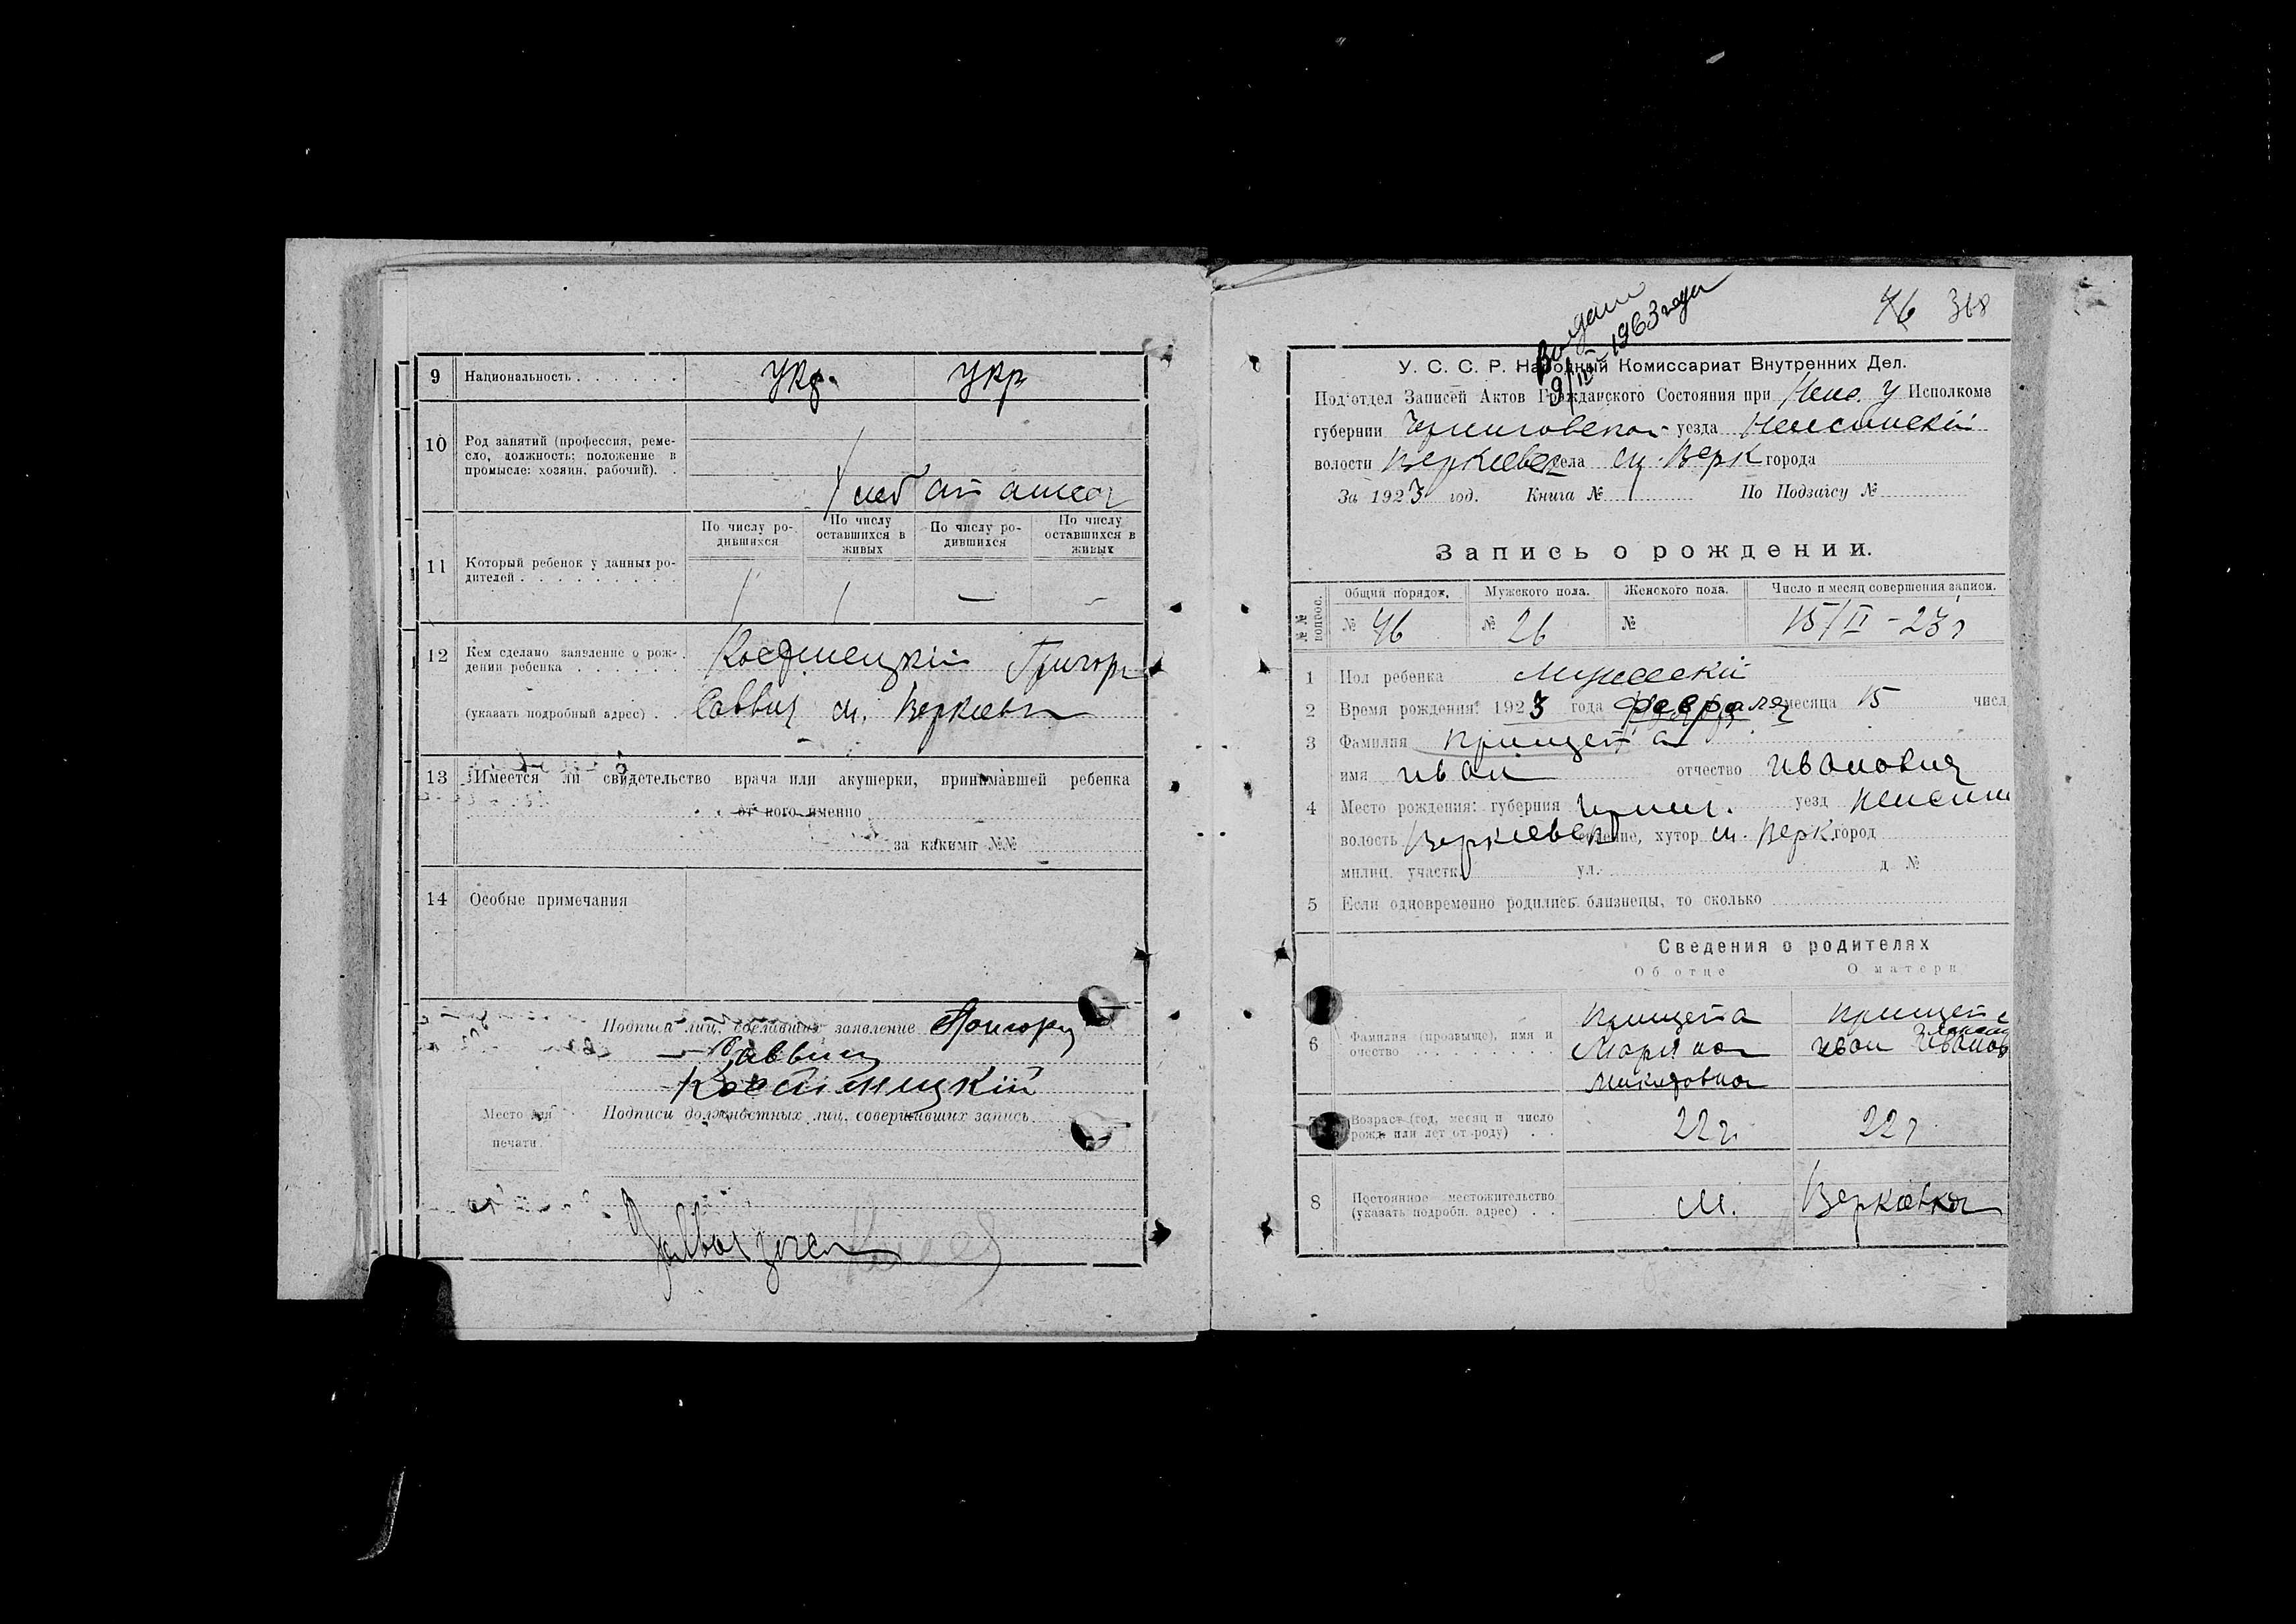 9 Национальность . . . . . . укр. укр
10 Род занятий (профессия, реме-
сло, должность; положение в
промысле: хозяин, рабочий). .
11 Который ребенок у данных ро-
дителей . . . . . . . . .
По числу ро-
дившихся
По числу
оставшихся в
живых
По числу ро-
дившихся
По числу
оставшихся в
живых
1 1 — -
12 Кем сделано заявление о рож-
дении ребенка . . . . . .
Григор
(указать подробный адрес) . . Саввич м. Веркиевк
13 Имеется ли свидетельство врача или акушерки, принимавшей ребенка
от кого именно
за какими №№
14 Особые примечания
Подписи лиц, сделавших заявление Григори
Саввич
Место для
печати.
Подписи должностных лиц, совершивших запись
Выдано
9/IV 1963 года
46 368
У. С. С. Р. Народный Комиссариат Внутренних Дел.
Под‘отдел Записей Актов Гражданского Состояния при У Исполкоме
губернии Черниговской уезда Неженский
волости Веркиевск села м. Верк города
За 1923 год. Книга № По Подзагсу №
Запись о рождении.
№№ вопрос.
Общий порядок. Мужского пола. Женского пола. Число и месяц совершения записи.
№ 46 № 26 № 15/II - 23 г
1 Пол ребенка Мужеский
2 Время рождения: 1923 года февраля месяца 15 числ
3 Фамилия Прищепа
имя Иван отчество Иванович
4 Место рождения: губерния Черниг. уезд Нежин
волость Веркиевск селение, хутор м. Верк. город
милиц. участк. ул. д №
5 Если одновременно родились близнецы, то сколько
Сведения о родителях
Об отце О матери
6 Фамилия (прозвыще), имя и
очество . . . . . . . . . .
Прищепа Прищепа
Марина Иван Иванов
Никитовна
7 Возраст (год, месяц и число
рожд. или лет от роду) . . 22 г. 22 г
8 Постоянное местожительство
(указать подробн. адрес) . . м. Веркиевка